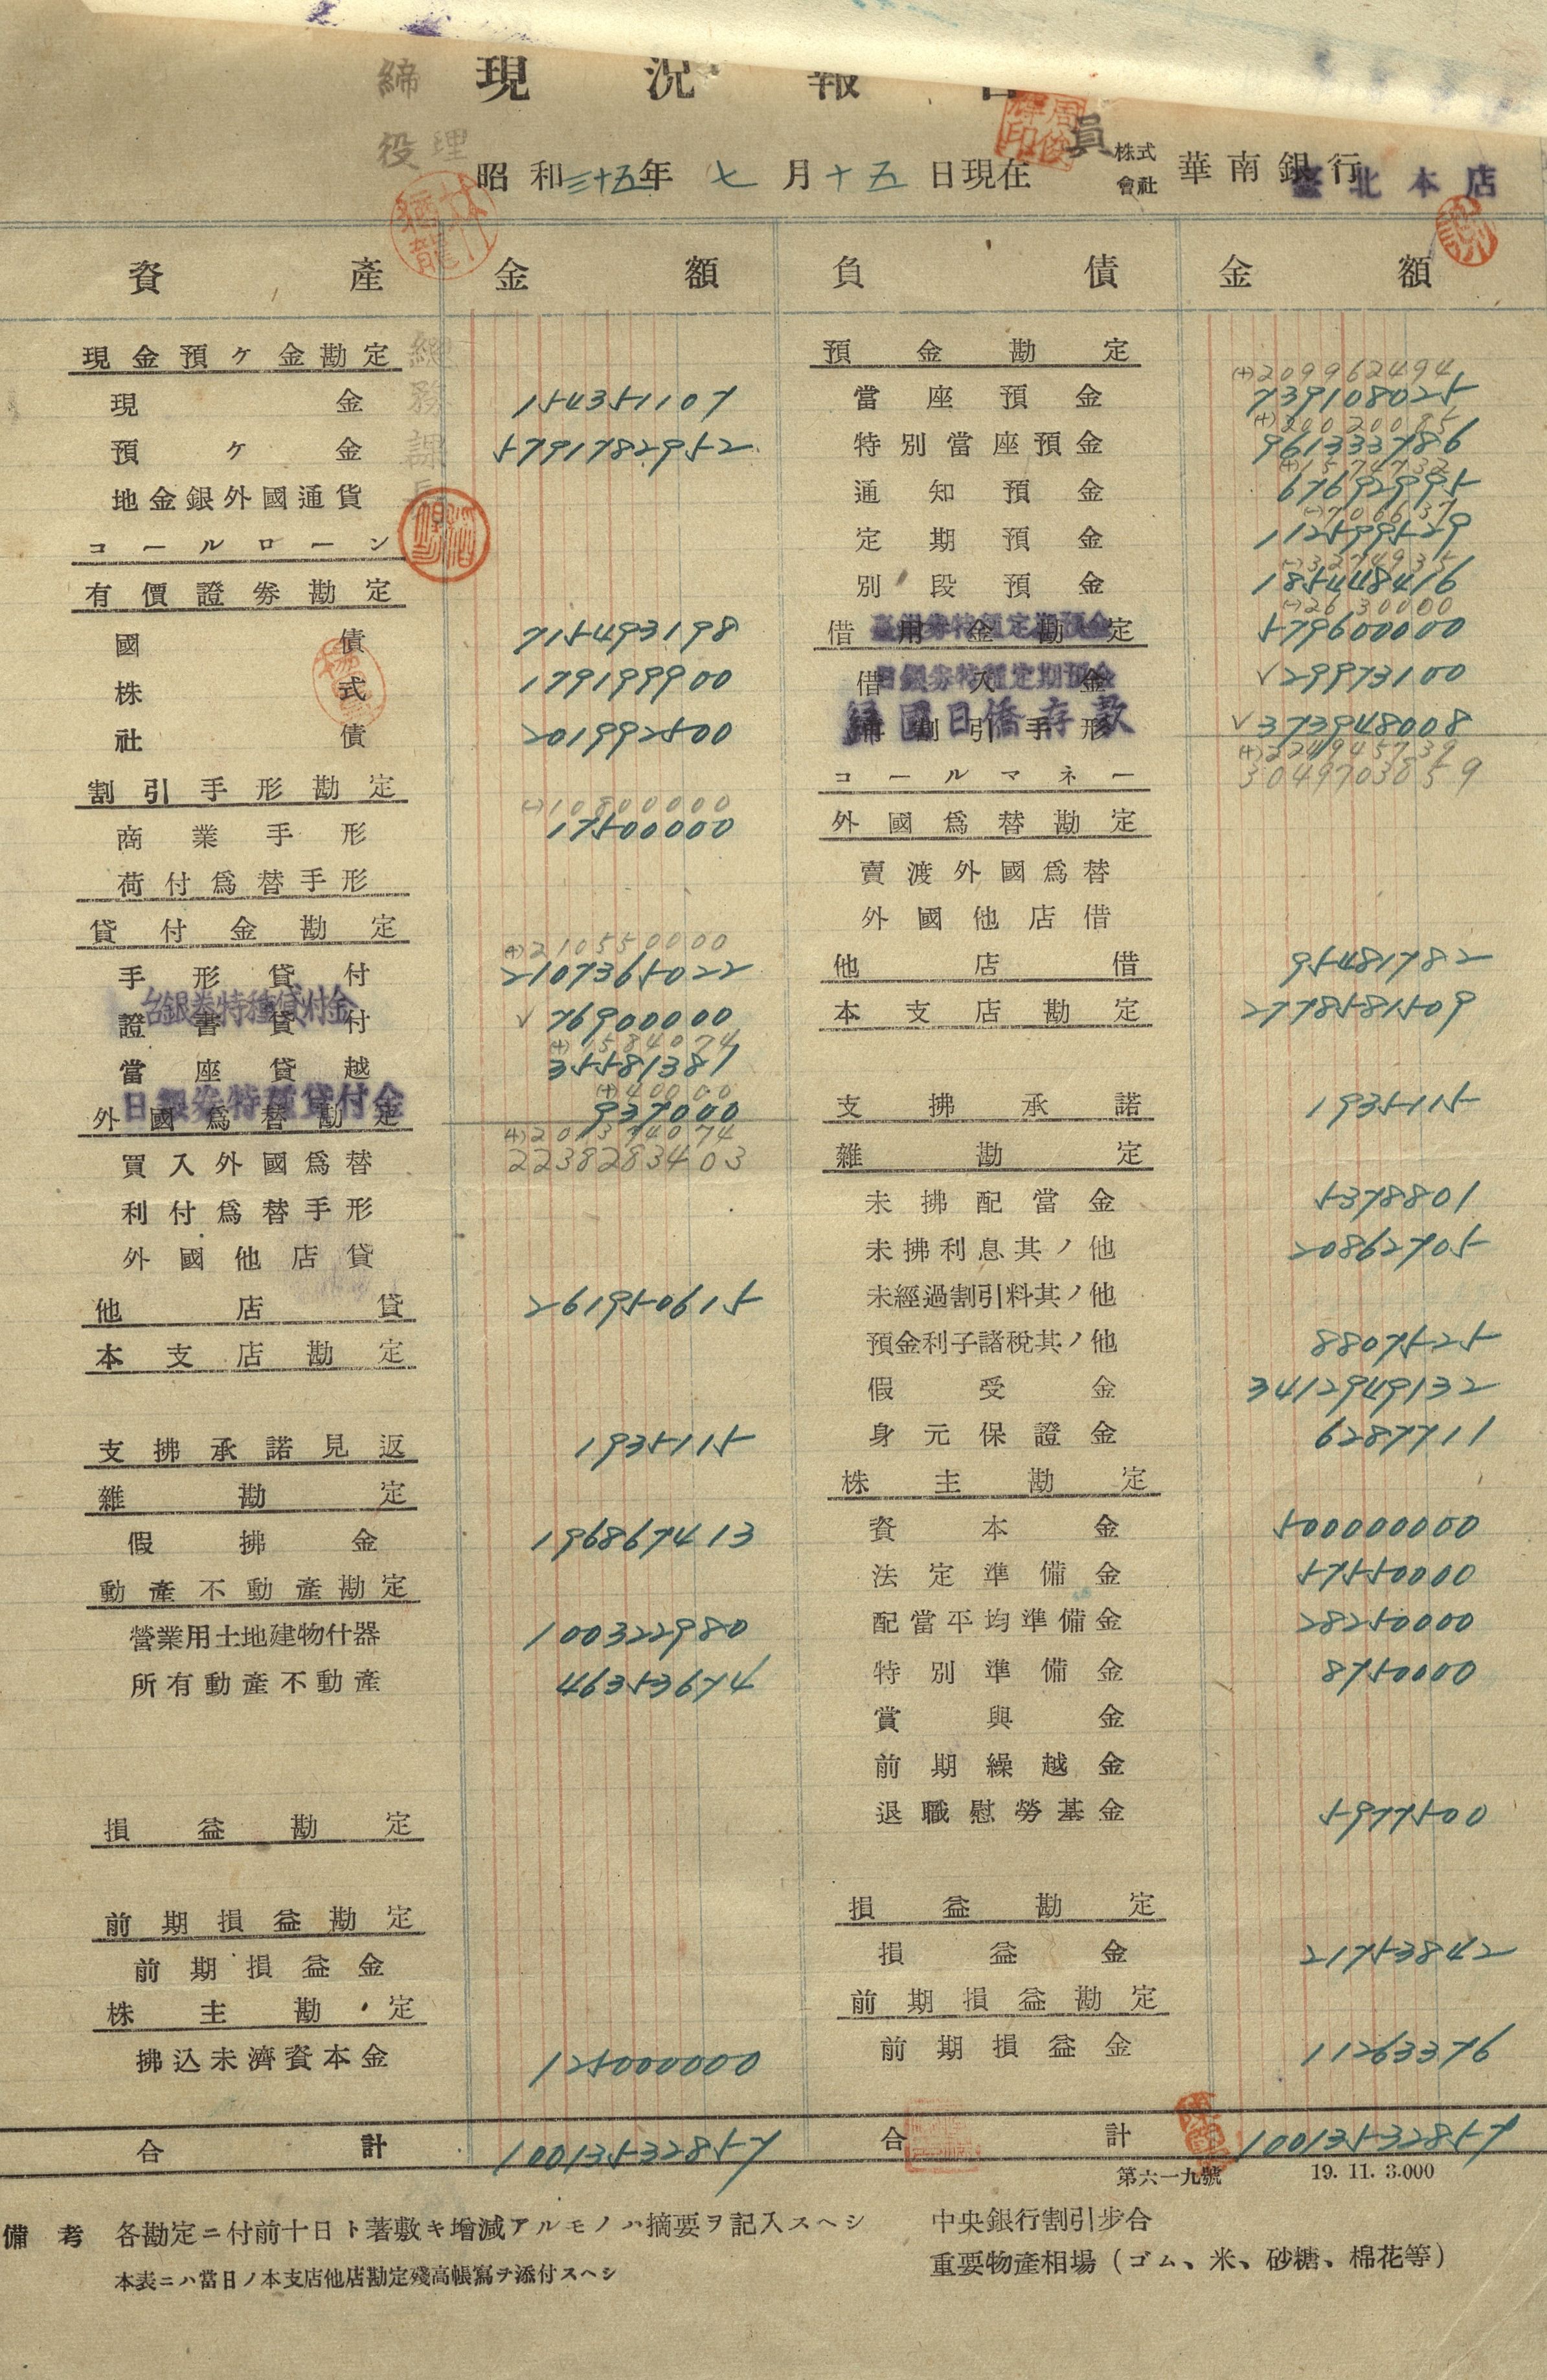 現況報告
締
役 理
員
昭和三十五年 七月十五日現在
株式會社 華南銀行
臺北本店
資產 金額 負債 金額
現金預ケ金勘定
現金 154351107
預ケ金 5791782952
地金銀外國通貨
コールローン
有價證券勘定
國債 715493198
株式 179199900
社債 201992500
割引手形勘定
(-)10800000
商業手形 17500000
荷付爲替手形
貸付金勘定
(+)210550000
手形貸付 2107365022
台銀券特種貸付金
證書貸付 √76900000
(+)1584074
當座貸越 35581381
日銀券特種貸付金
(+)40000
外國爲替勘定 937000
(+)201374074
2238283403
買入外國爲替
利付爲替手形
外國他店貸
他店貸 261950615
本支店勘定
支拂承諾見返 1935115
雜勘定
假拂金 196867413
動產不動產勘定
營業用土地建物什器 100322980
所有動產不動產 46353674
損益勘定
前期損益勘定
前期損益金
株主勘定
拂込未濟資本金 125000000
合計 10013532857
總務課長
預金勘定
(+)209962494
當座預金 739108025
(+)30020095
特別當座預金 961333786
(+)15774732
通知預金 67692995
(-)706637
定期預金 112599529
(-)3274935
別段預金 185448416
(-)2630000
臺銀券特種定期預金
借用金勘定 579600000
日銀券特種定期預金
借入金 √29973100
歸國日僑存款
再割引手形 √373948008
(+)224945739
3049703859
コールマネー
外國爲替勘定
賣渡外國爲替
外國他店借
他店借 95481782
本支店勘定 2778581509
支拂承諾 1935115
雜勘定
未拂配當金 5378801
未拂利息其ノ他 20862705
未經過割引料其ノ他
預金利子諸稅其ノ他 8807525
假受金 3412949132
身元保證金 6287711
株主勘定
資本金 500000000
法定準備金 57550000
配當平均準備金 28250000
特別準備金 8750000
賞與金
前期繰越金
退職慰勞基金 5977500
損益勘定
損益金 21753842
前期損益勘定
前期損益金 11263376
合計 10013532857
第六一九號 19. 11. 3.000
備考 各勘定ニ付前十日ト著敷キ增減アルモノハ摘要ヲ記入スヘシ
本表ニハ當日ノ本支店他店勘定殘高帳寫ヲ添付スヘシ
中央銀行割引步合
重要物產相場(ゴム、米、砂糖、棉花等)